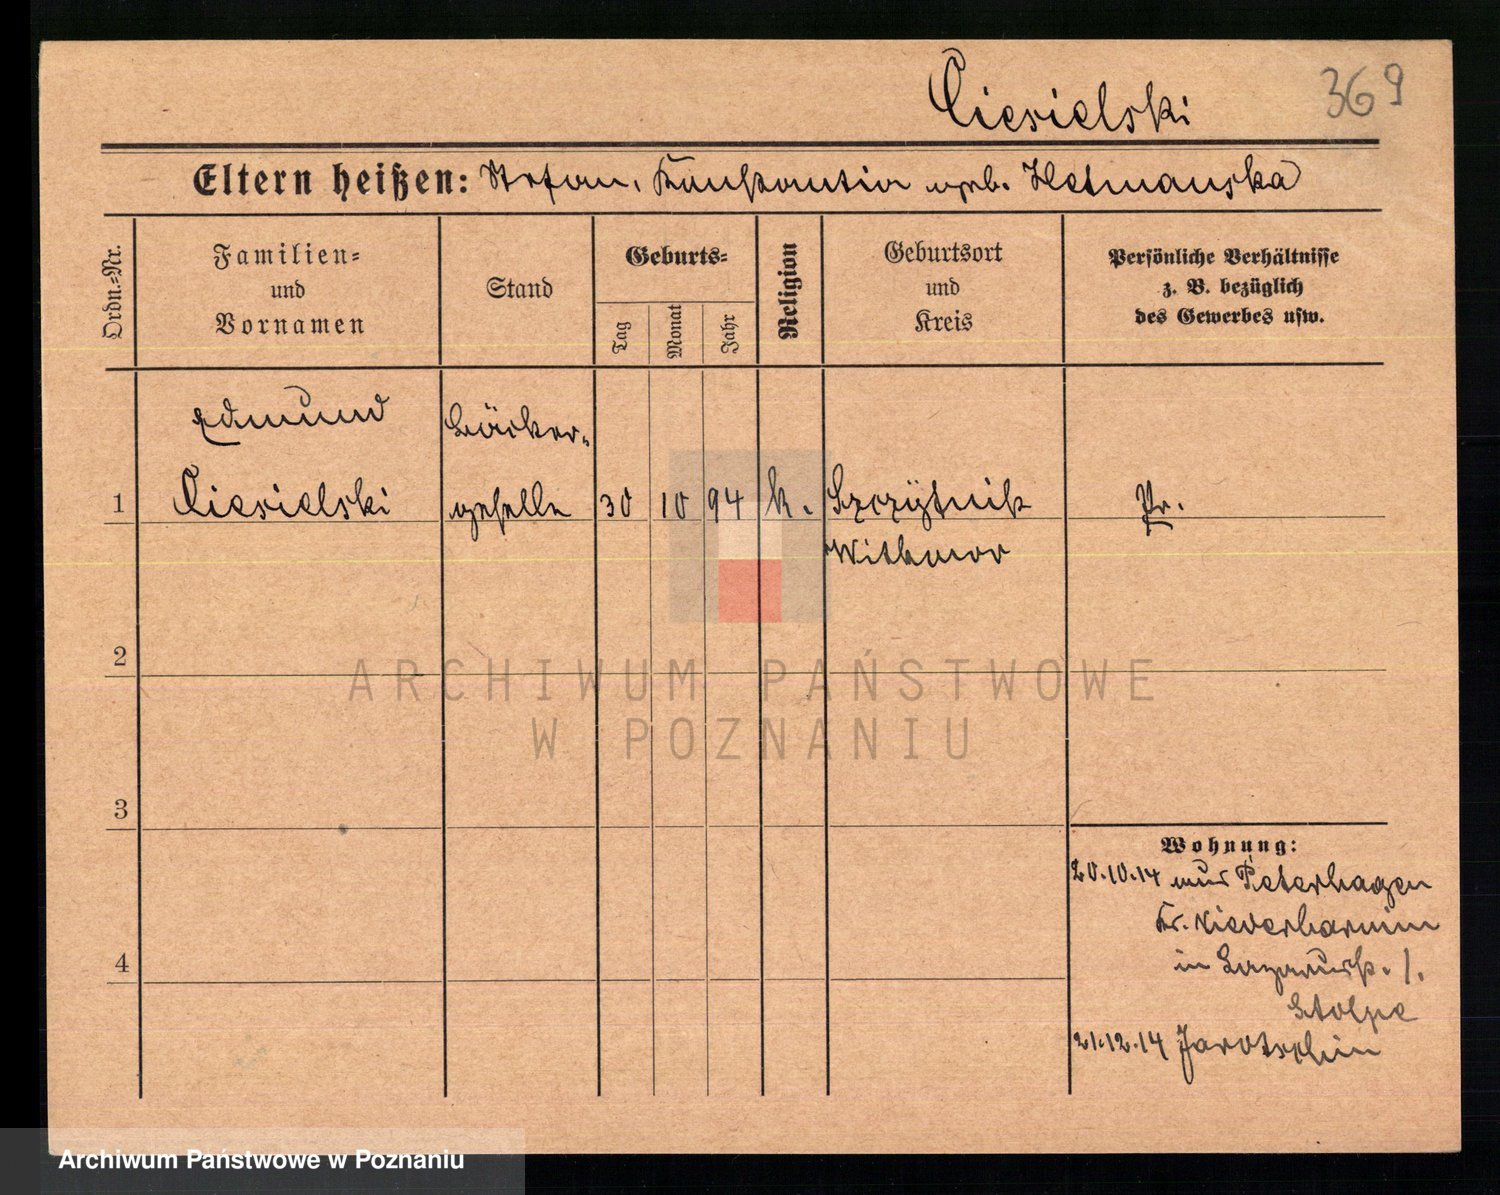 Ciesielski
369
Eltern heißen: Stefan, Konstantia geb. Hetmanska
Ordn.=Nr.
Familien=
und
Vornamen
Stand
Geburts=
Tag
Monat
Jahr
Religion
Geburtsort
und
Kreis
Persönliche Verhältnisse
z. B. bezüglich
des Gewerbes usw.
Edmund
Bäcker-
1
Ciesielski
geselle
30
10
94
k.
Szczytnik
Pr.
Witkowo
2
ARCHIWUM PAŃSTWOWE
W POZNANIU
3
Wohnung:
20.10.14 aus Petershagen
Kr. Niederbarnim
in
b.
Stolpe
4
21.12.14 Jarotschin
Archiwum Państwowe w Poznaniu